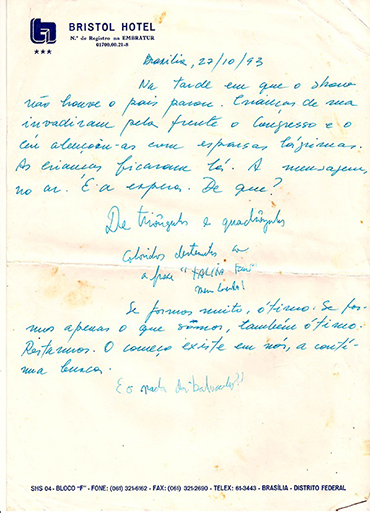 BRISTOL HOTEL
N.º de Registro na EMBRATUR
01700.00.21-8
Brasília, 27/10/93
Na tarde em que o show
não houve o país parou. Crianças de rua
invadiram pela frente o Congresso e o
céu abençoou-as com esparsas lágrimas.
As crianças ficaram lá. A mensagem,
no ar. E a espera. De que?
De triângulos e quadrângulos
Coloridos
a frase
Se formos muito, ótimo. Se for-
mos apenas o que sômos, também ótimo.
Restamos. O começo existe em nós, a contí-
nua busca.
E o
SHS 04 - BLOCO "F" - FONE: (061) 321-6162 - FAX: (061) 321-2690 - TELEX: 61-3443 - BRASÍLIA - DISTRITO FEDERAL